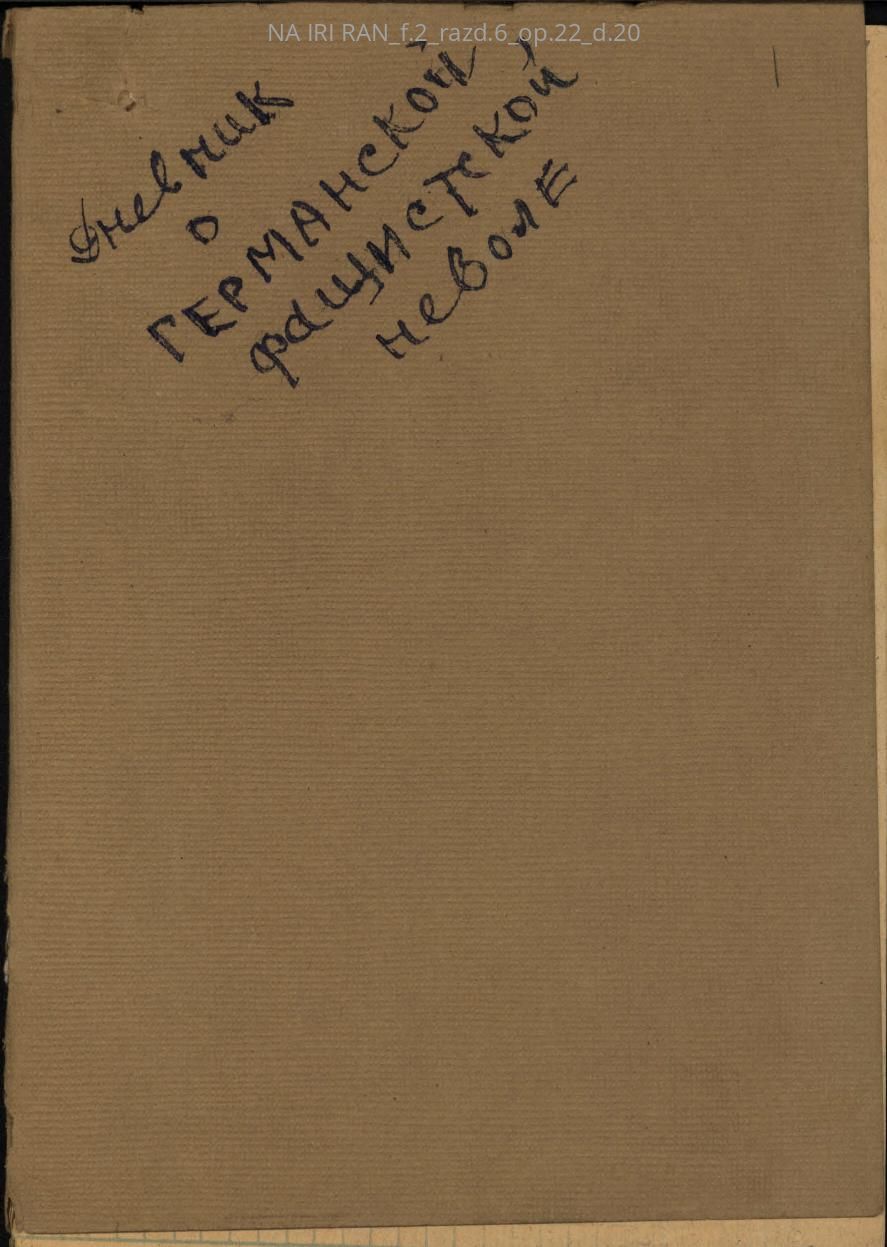 NA IRI RAN_f.2_razd.6_op.22_d.20
Дневник
о
ГЕРМАНСКОЙ
фащистской
неволЕ